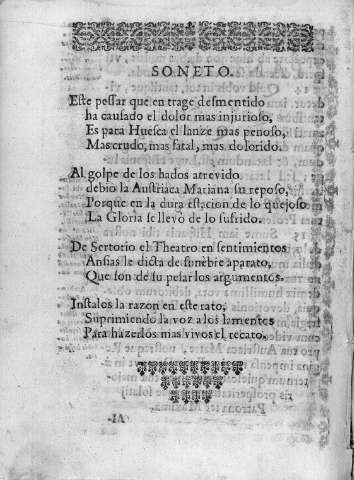 SONETO.
Este pessar que en trage desmentido
ha causado el dolor mas injurioso,
Es para Huesca el lanze mas penoso,
Mas crudo, mas fatal, mas dolorido.
Al golpe de los hados atrevido
debiò la Austriaca Mariana su reposo,
Porque en la dura estacion de lo quejoso
La Gloria se llevò de lo sufrido.
De Sertorio el Theatro en sentimientos
Ansias le dicta de funebre aparato,
Que son de su pesar los argumentos.
Instalos la razon en este rato,
Suprimiendo la voz a los lamentes
Para hazerlos mas vivos el recato.